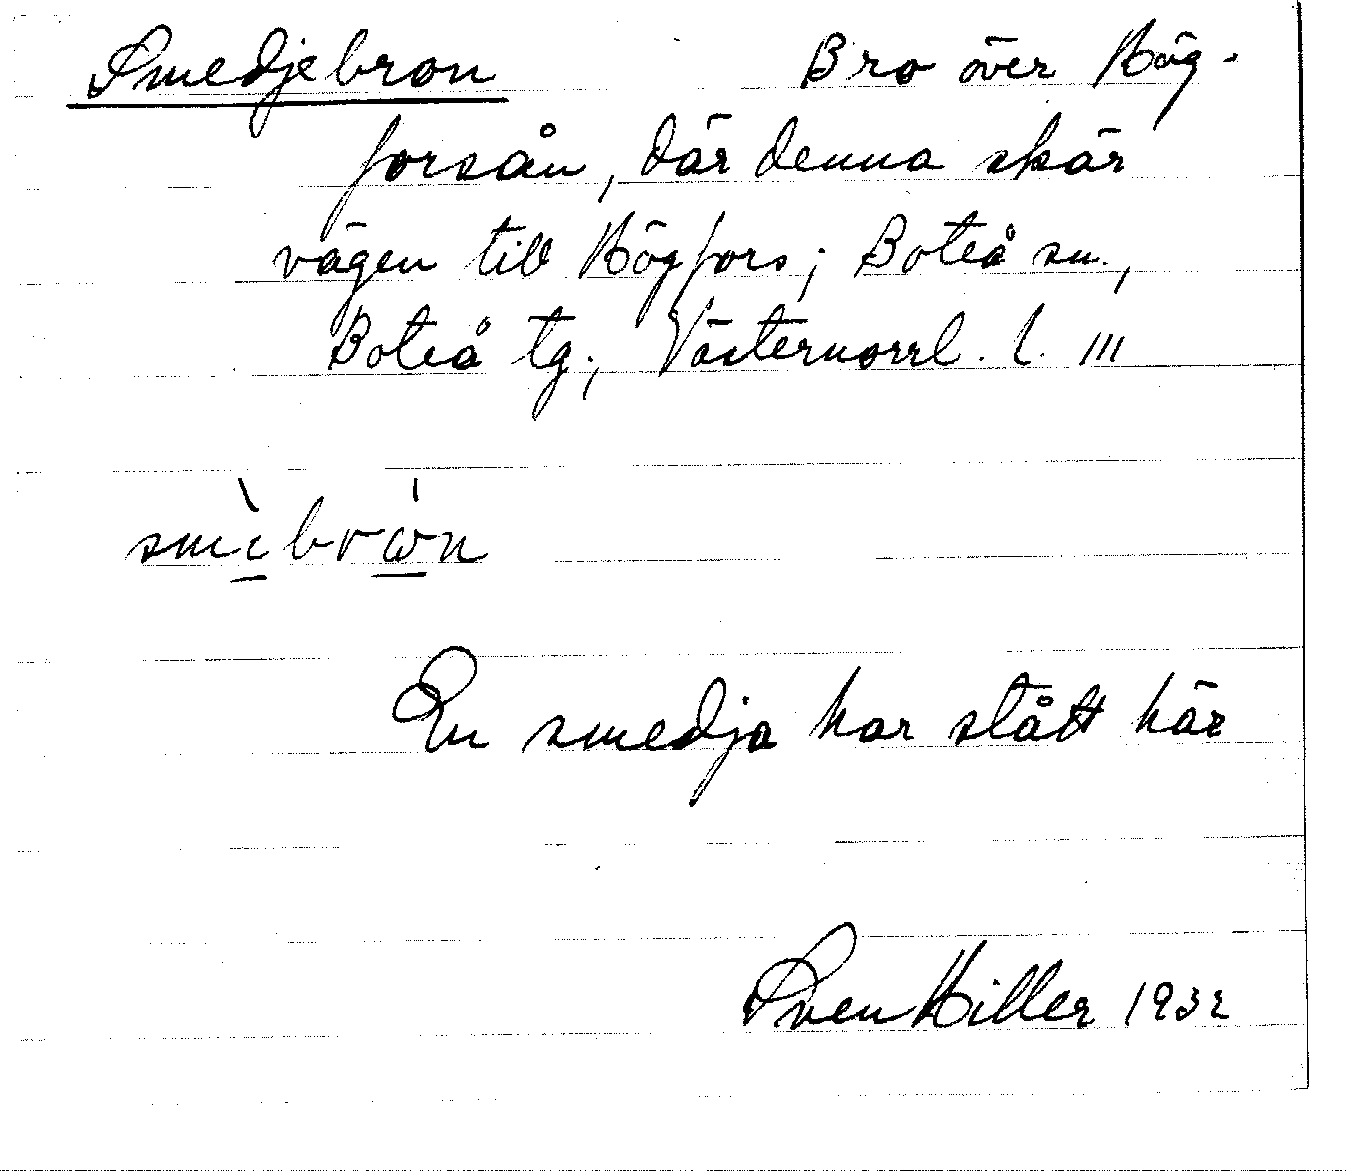 Smedjebron Bro över Hög-
forsån, där denna skär
vägen till Högfors; Boteå sn.,
Boteå tg; Västernorrl. l. III
smìbrὼn
En smedja har stått här
Sven Hiller 1932